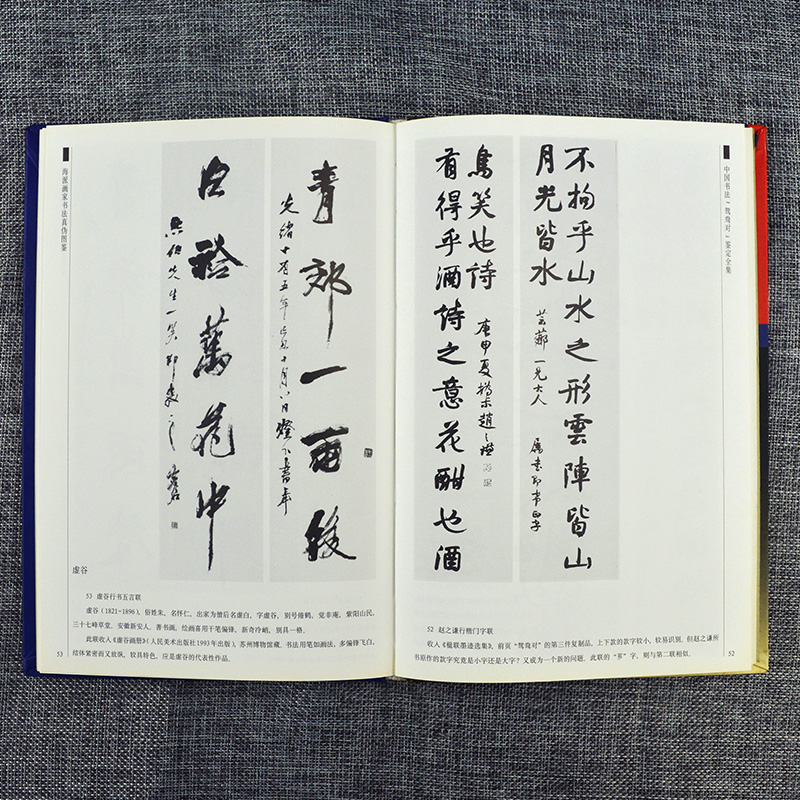 中国书法“鸳鸯对”鉴定全集
不拘乎山水之形雲陣皆山
月光皆水
芸薌一兄大人
属書即希正字
有得乎酒詩之意花酣也酒
鳥笑也詩
庚申夏撝未趙之謙
52 赵之谦行楷门字联
收入《楹联墨迹选集》,前页“鸳鸯对”的第三件复制品,上下款的款字较小,较易识别,但赵之谦所
书原作的款字究竟是小字还是大字?又成为一个新的问题,此联的“芗”字,则与第二联相似。
52
青郊一雨後
光緒十有五年 十月八日燈下書奉
白袷萬花中
先生一笑即
虚谷
海派画家书法真伪图鉴
虚谷
53 虚谷行书五言联
虚谷(1821-1896),俗姓朱,名怀仁,出家为僧后名虚白,字虚谷,别号倦鹤,觉非庵,紫阳山民,
三十七峰草堂,安徽新安人,善书画,绘画喜用干笔偏锋,新奇冷峭,别具一格。
此联收入《虚谷画册》(人民美术出版社1993年出版),苏州博物馆藏,书法用笔如画法,多偏锋飞白,
结体紧密而又放纵,较具特色,应是虚谷的代表性作品。
53